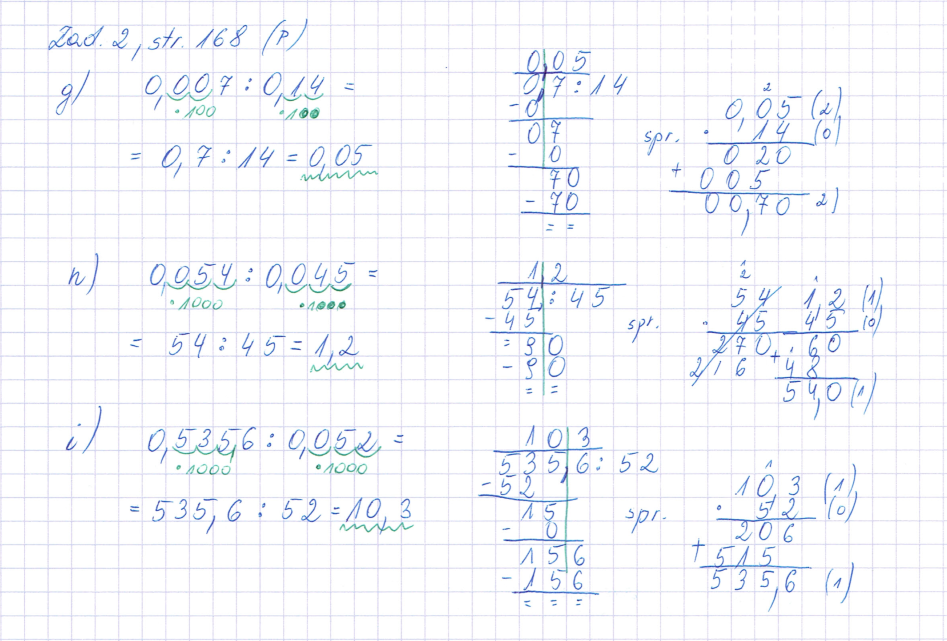 Zad. 2, str. 168 (P)
g) 0,007 : 0,14 =
·100 ·100
= 0,7 : 14 = 0,05
0,05
0,7 : 14
-0
07
- 0
70
- 70
= =
spr.
2
0,05 (2)
· 14 (0)
020
+ 005
00,70 2)
h) 0,054 : 0,045 =
·1000 ·1000
= 54 : 45 = 1,2
1,2
54, : 45
-45
= 90
- 90
= =
spr.
2
54
· 45
270
216
1
1,2 (1)
45 (0)
60
+ 48
54,0 (1)
i) 0,5356 : 0,052 =
·1000 ·1000
= 535,6 : 52 = 10,3
10 3
535,6 : 52
-52
15
- 0
156
- 156
= = =
spr.
1
10,3 (1)
· 52 (0)
206
+ 515
535,6 (1)